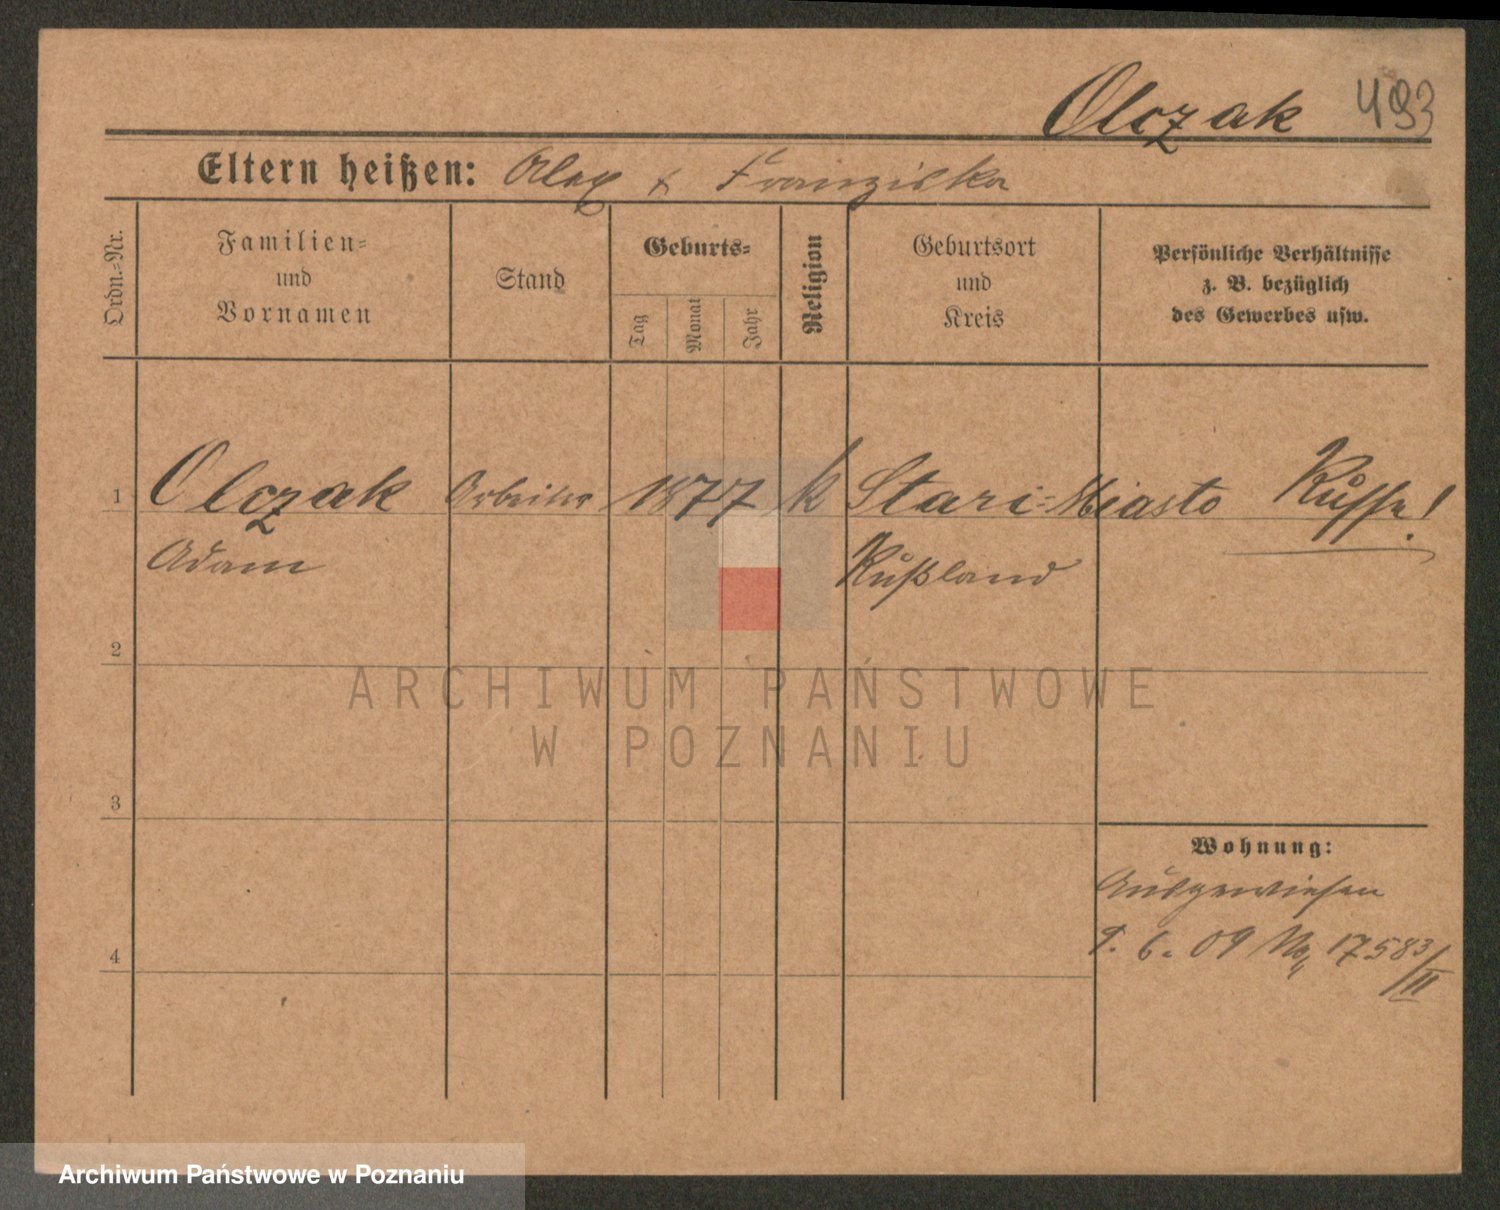 Olczak 493
Eltern heißen: Alex & Franziska
Ordn.-Nr.
Familien-
und
Vornamen
Stand
Geburts-
Tag
Monat
Jahr
Religion
Geburtsort
und
Kreis
Persönliche Verhältnisse
z. B. bezüglich
des Gewerbes usw.
1 Olczak Arbeiter 1877 k Stari-Miasto Russe!
Adam Rußland
2
3
4
Wohnung:
Ausgewiesen
9. 6. 09 17583/II
ARCHIWUM PAŃSTWOWE
W POZNANIU
Archiwum Państwowe w Poznaniu